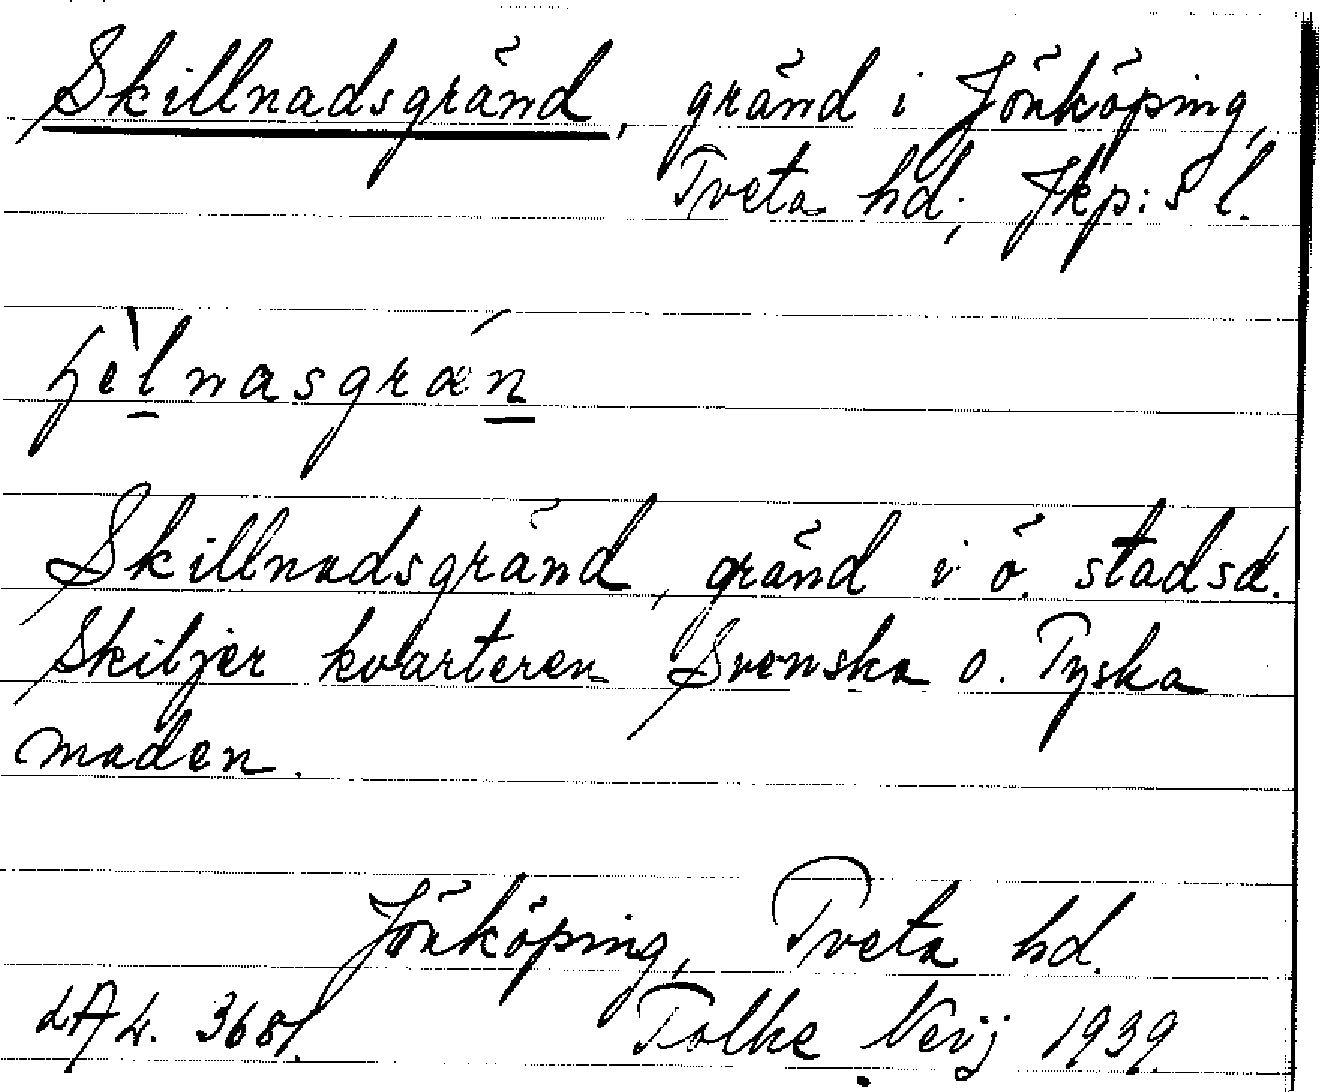 Skillnadsgränd, gränd i Jönköping,
Tveta hd; Jkp:s l.
Skillnadsgränd, gränd i ö. stadsd.
Skiljer kvarteren Svenska o. Tyska
maden.
Jönköping, Tveta hd.
3681. Folke Nevij 1939